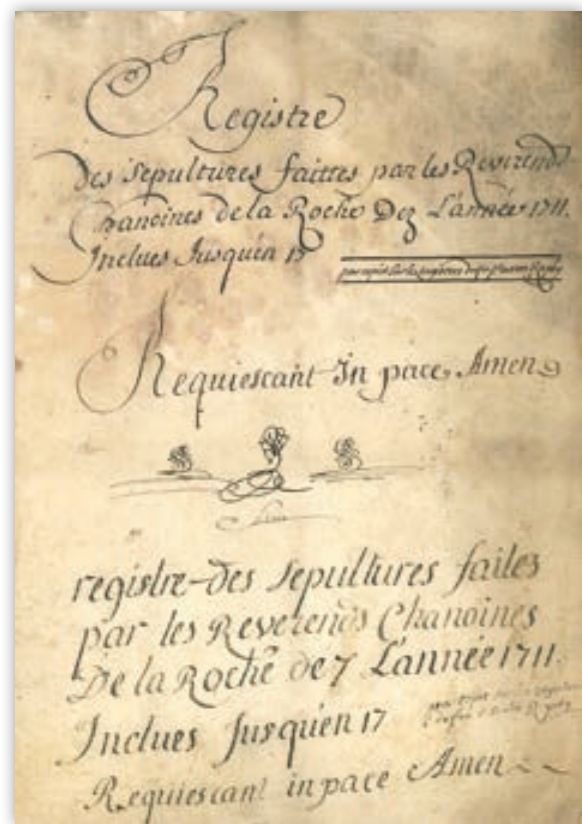 Registre
Des sepultures faittes par les Reverends
Chanoines de la Roche Dez L'année 1711.
Inclues Jusquen 17
par copie sur les
Requiescant In pace, Amen
registre des sepultures faites
par les Reverends Chanoines
De la Roche de 7 L'année 1711.
Inclues Jusqu'en 17
Requiescant in pace Amen